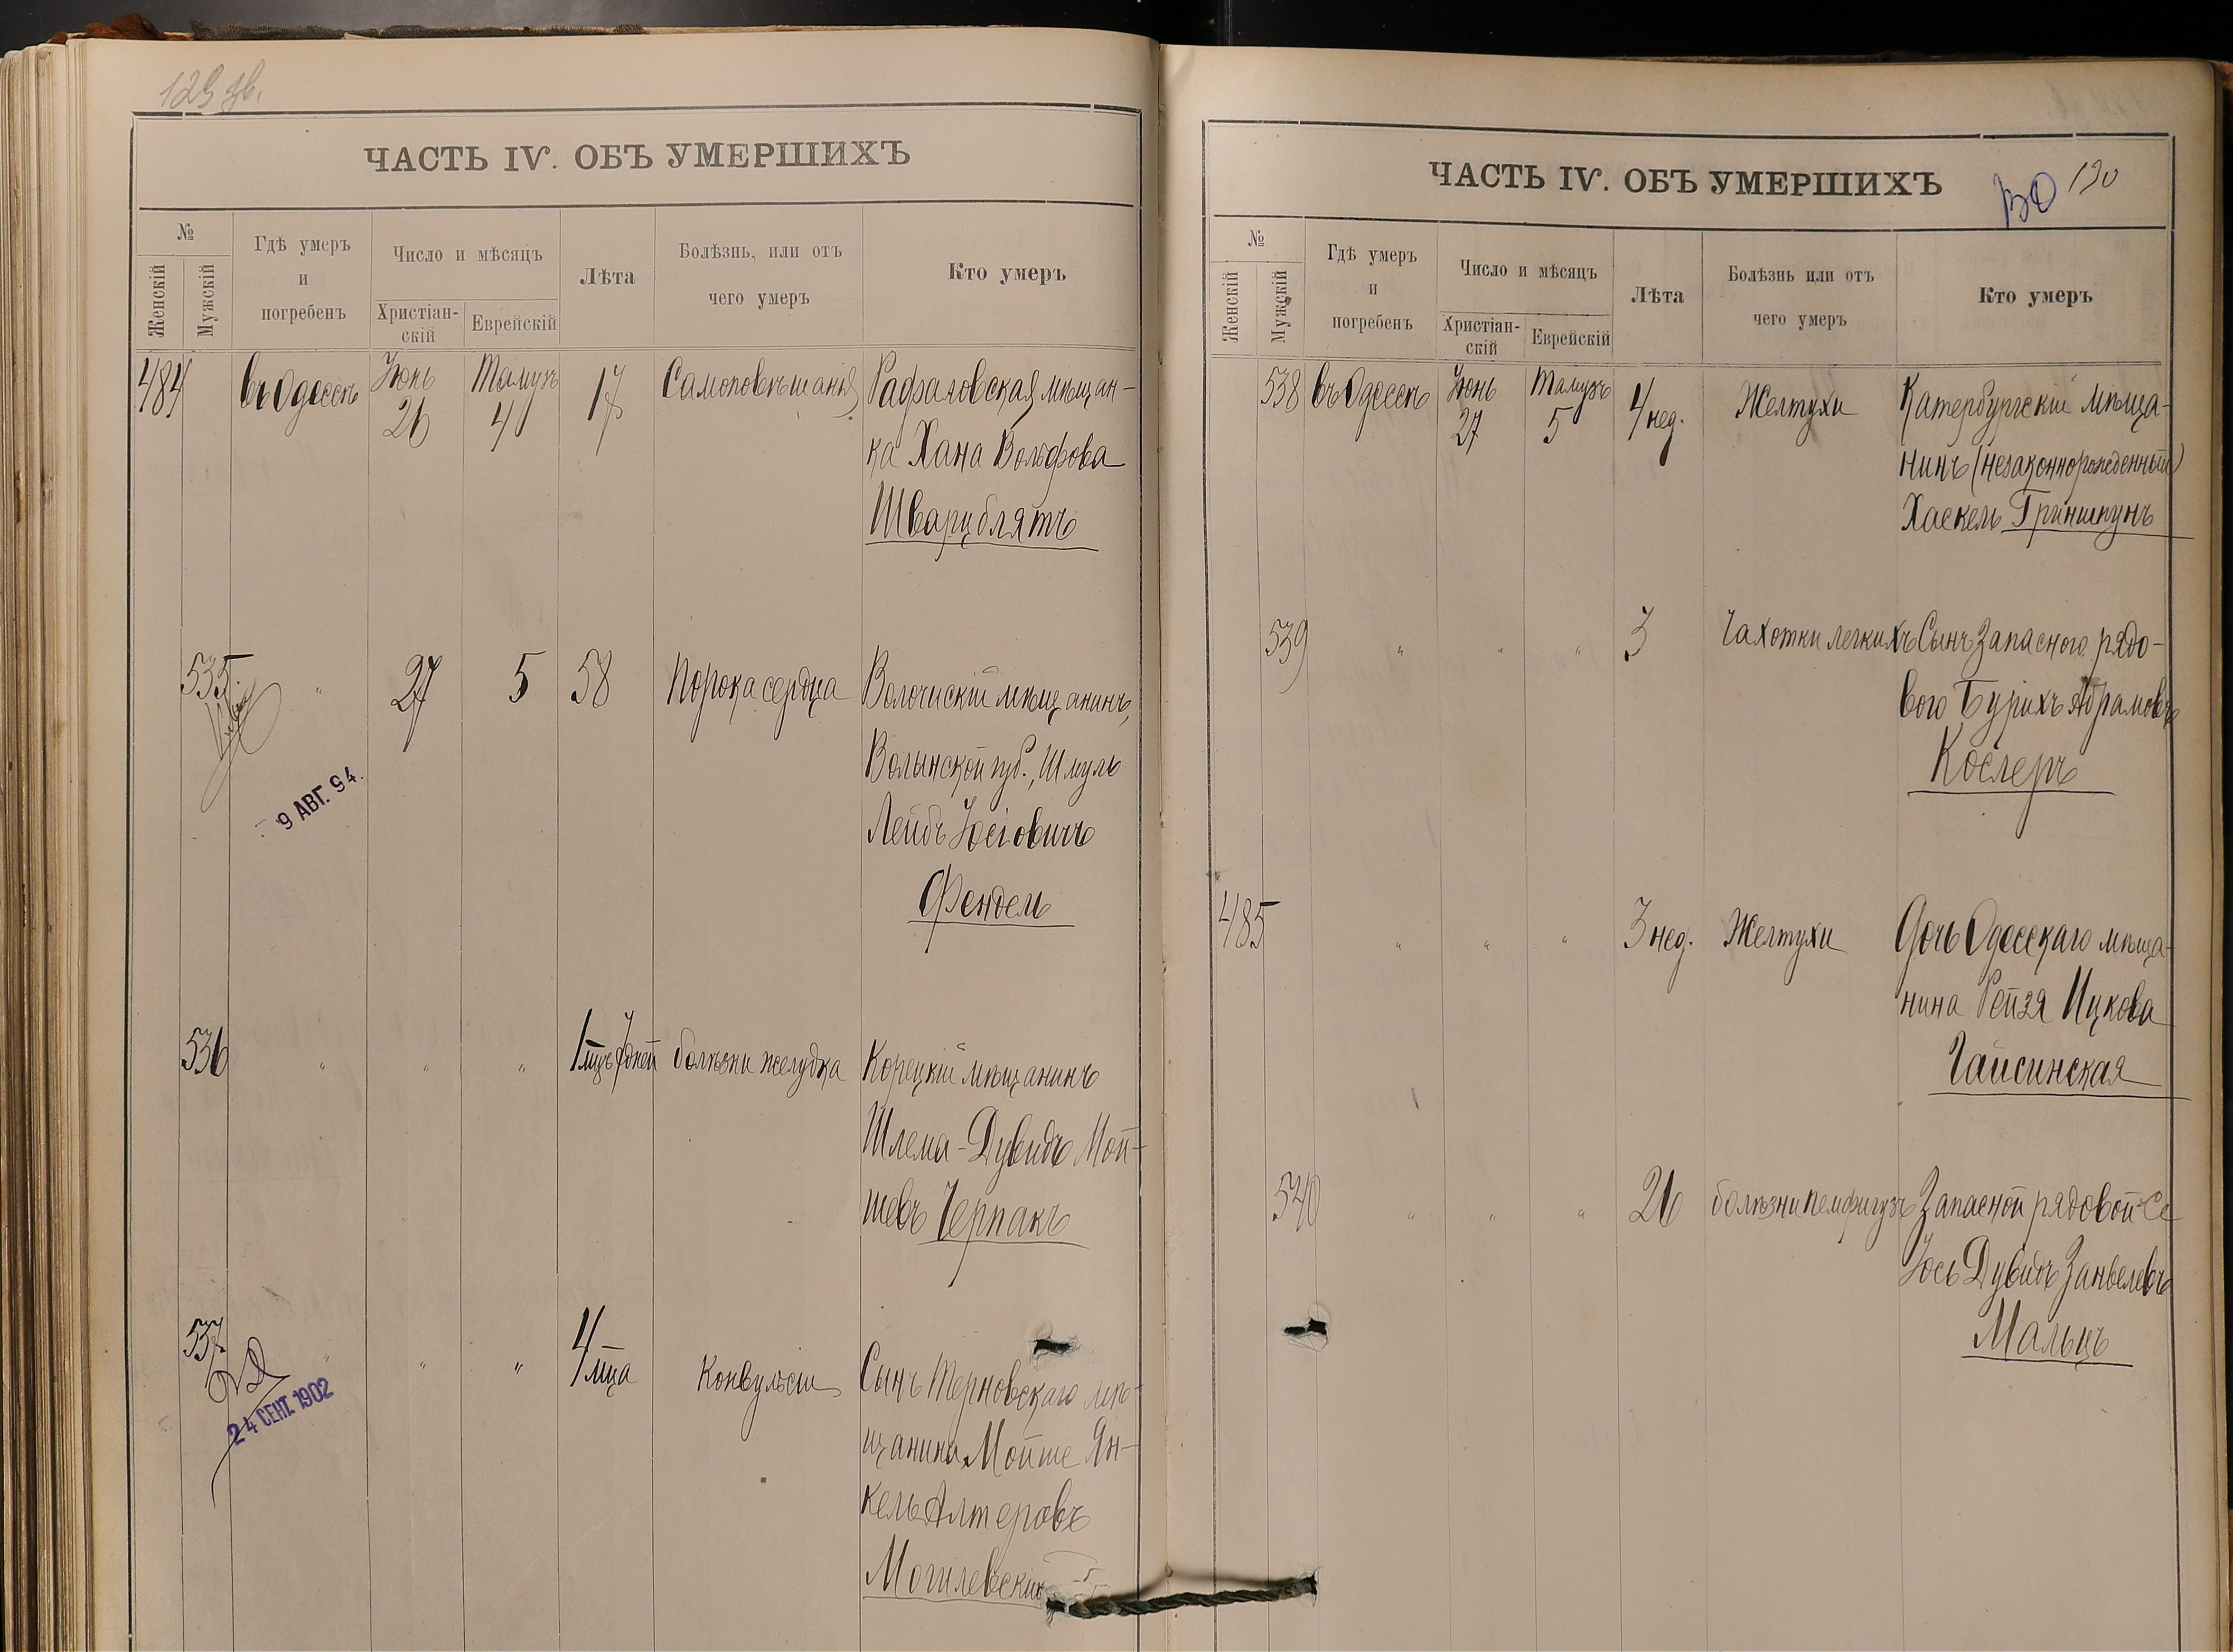 ЧАСТЬ IV. ОБЪ УМЕРШИХЪ
№
Женскій
Мужскій
Гдѣ умеръ
и
погребенъ
Число и мѣсяцъ
Христіан-
скій
Еврейскій
Лѣта
Болѣзнь, или отъ
чего умеръ
Кто умеръ
484 въ Одессѣ Іюнь 26 Тамузъ 4 17 Самоповѣшанія Рафаловская мѣщан-
ка Хана Вольфова
Шварцблятъ
535 " 27 5 58 Порока сердца Волочискій мѣщанинъ,
Волынской губ., Шмуль
Лейбъ Іосіовичъ
Фендель
9 АВГ. 94.
536 " " " 1 мцъ 7 дней болѣзни желудка Корецкій мѣщанинъ
Шлема-Дувидъ Мой-
шевъ Черпакъ
537 " " " 4 мца Конвульсіи Сынъ Терновскаго мѣ-
щанина Мойше Ян-
кель Алтеровъ
Могилевскій
24 СЕНТ. 1902
ЧАСТЬ IV. ОБЪ УМЕРШИХЪ
130
№
Женскій
Мужскій
Гдѣ умеръ
и
погребенъ
Число и мѣсяцъ
Христіан-
скій
Еврейскій
Лѣта
Болѣзнь или отъ
чего умеръ
Кто умеръ
538 въ Одессѣ Іюнь 27 Тамузъ 5 4 нед. Желтухи Катербургскій мѣща-
нинъ (незаконнорожденный)
Хаскель Гриншпунъ
539 " " " 3 Чахотки легкихъ Сынъ Запасного рядо-
вого Бурихъ Абрамовъ
Кослеръ
485 " " " 3 нед. Желтухи Дочь Одесскаго мѣща-
нина Рейзя Ицкова
Гайсинская
540 " " " 26 болѣзни пемфигузъ Запасной рядовой
Іось Дувидъ Занвелевъ
Мальцъ